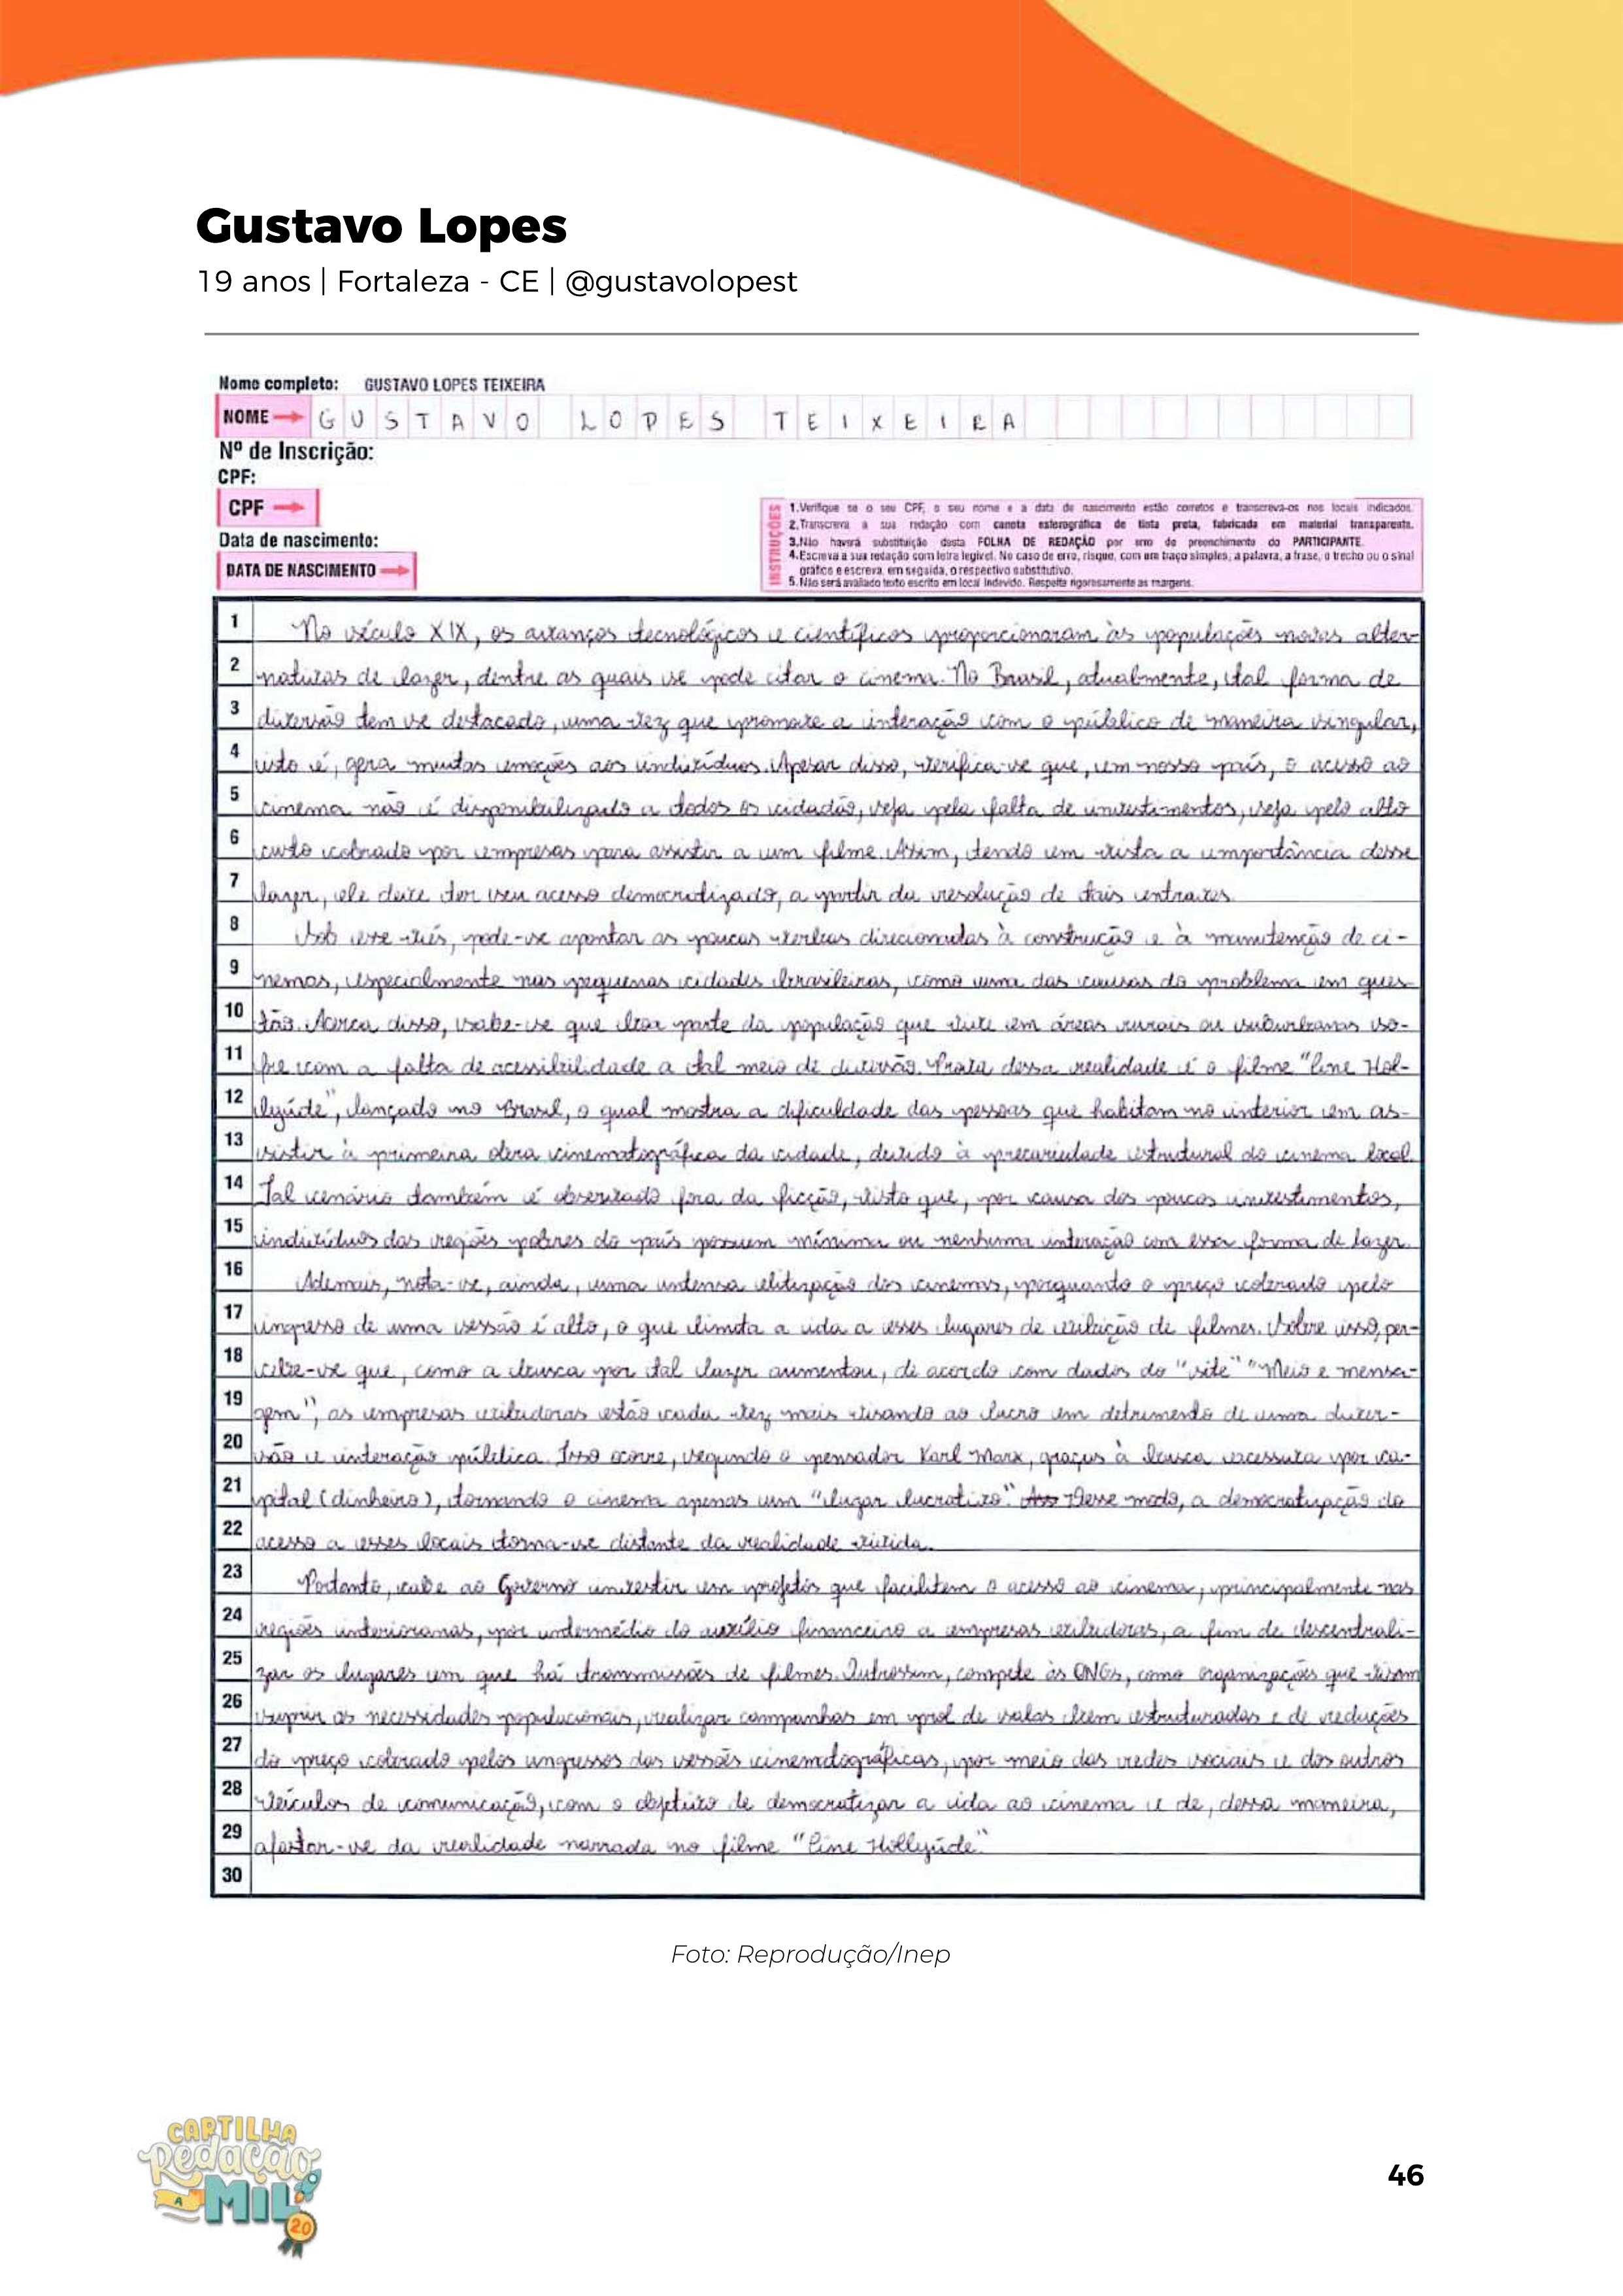 Gustavo Lopes
19 anos | Fortaleza - CE | @gustavolopest
Nome completo: GUSTAVO LOPES TEIXEIRA
NOME GUSTAVO LOPES TEIXEIRA
Nº de Inscrição:
CPF:
CPF
Data de nascimento:
DATA DE NASCIMENTO
INSTRUÇÕES
1.Verifique se o seu CPF, o seu nome e a data de nascimento estão corretos e transcreva-os nos locais indicados.
2.Transcreva a sua redação com caneta esferográfica de tinta preta, fabricada em material transparente.
3.Não haverá substituição desta FOLHA DE REDAÇÃO por erro de preenchimento do PARTICIPANTE.
4.Escreva a sua redação com letra legível. No caso de erro, risque, com um traço simples, a palavra, a frase, o trecho ou o sinal
gráfico e escreva, em seguida, o respectivo substitutivo.
5.Não será avaliado texto escrito em local indevido. Respeite rigorosamente as margens.
1 No século XIX, os avanços tecnológicos e científicos proporcionaram às populações novas alter-
2 nativas de lazer, dentre as quais se pode citar o cinema. No Brasil, atualmente, tal forma de
3 diversão tem se destacado, uma vez que promove a interação com o público de maneira singular,
4 isto é, gera muitas emoções aos indivíduos. Apesar disso, verifica-se que, em nosso país, o acesso ao
5 cinema não é disponibilizado a todos os cidadãos, seja pela falta de investimentos, seja pelo alto
6 custo cobrado por empresas para assistir a um filme. Assim, tendo em vista a importância desse
7 lazer, ele deve ter seu acesso democratizado, a partir da resolução de tais entraves.
8 Sob esse viés, pode-se apontar as poucas verbas direcionadas à construção e à manutenção de ci-
9 nemas, especialmente nas pequenas cidades brasileiras, como uma das causas do problema em ques-
10 tão. Acerca disso, sabe-se que boa parte da população que vive em áreas rurais ou suburbanas so-
11 fre com a falta de acessibilidade a tal meio de diversão. Prova dessa realidade é o filme "Cine Hol-
12 lyúde", lançado no Brasil, o qual mostra a dificuldade das pessoas que habitam no interior em as-
13 sistir à primeira obra cinematográfica da cidade, devido à precariedade estrutural do cinema local.
14 Tal cenário também é observado fora da ficção, visto que, por causa dos poucos investimentos,
15 indivíduos das regiões pobres do país possuem mínima ou nenhuma interação com essa forma de lazer.
16 Ademais, nota-se, ainda, uma intensa elitização dos cinemas, porquanto o preço cobrado pelo
17 ingresso de uma sessão é alto, o que limita a ida a esses lugares de exibição de filmes. Sobre isso, per-
18 cebe-se que, como a busca por tal lazer aumentou, de acordo com dados do "site" "Meio e mensa-
19 gem", as empresas exibidoras estão cada vez mais visando ao lucro em detrimento de uma diver-
20 são e interação pública. Isso ocorre, segundo o pensador Karl Marx, graças à busca excessiva por ca-
21 pital (dinheiro), tornando o cinema apenas um "lugar lucrativo". Desse modo, a democratização do
22 acesso a esses locais torna-se distante da realidade vivida.
23 Portanto, cabe ao Governo investir em projetos que facilitem o acesso ao cinema, principalmente nas
24 regiões interioranas, por intermédio do auxílio financeiro a empresas exibidoras, a fim de descentrali-
25 zar os lugares em que há transmissões de filmes. Outrossim, compete às ONGs, como organizações que visam
26 suprir as necessidades populacionais, realizar campanhas em prol de salas bem estruturadas e de reduções
27 do preço cobrado pelos ingressos das sessões cinematográficas, por meio das redes sociais e dos outros
28 veículos de comunicação, com o objetivo de democratizar a ida ao cinema e de, dessa maneira,
29 afastar-se da realidade narrada no filme "Cine Hollyúde".
30
Foto: Reprodução/Inep
CARTILHA
Redação
A MIL
2.0
46